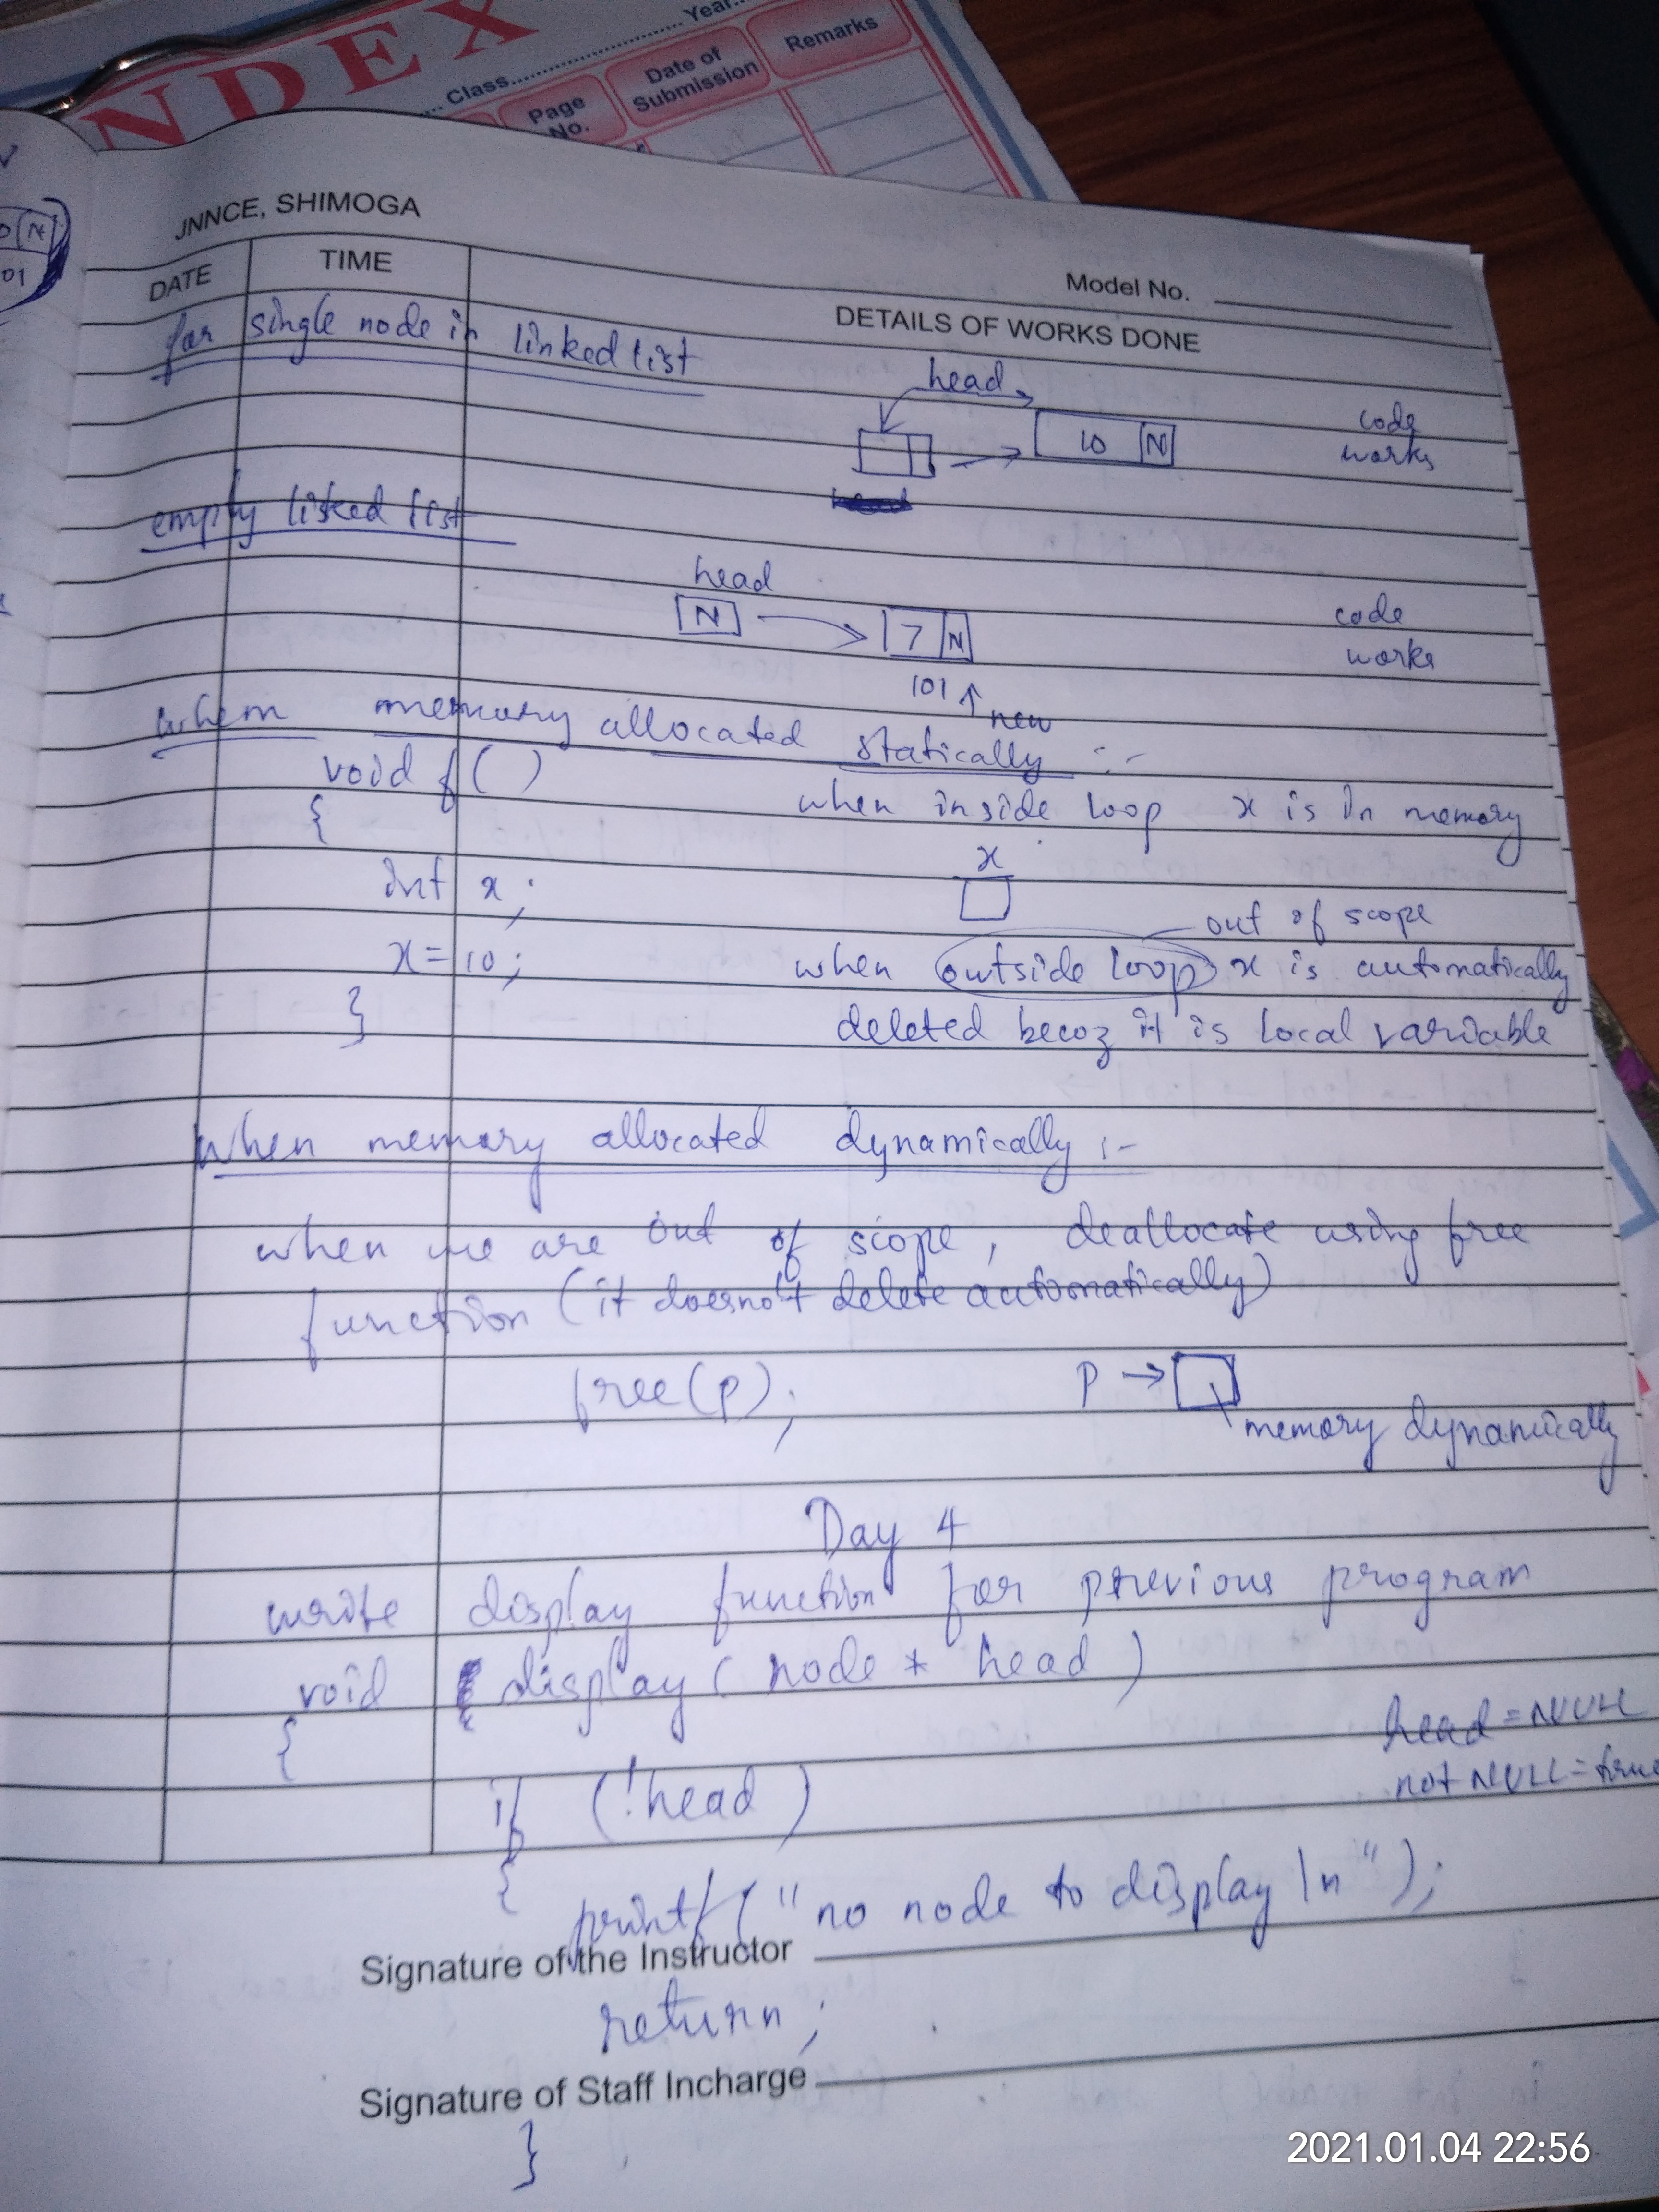 INDEX
Class
Year
Page No.
Date of Submission
Remarks
JNNCE, SHIMOGA
Model No.
DATE TIME DETAILS OF WORKS DONE
for single node in linked list
head
10 N
code works
empty listed list
head
N 7 N
code works
101 new
when memory allocated statically :-
void f ( )
{
when inside loop x is in memory
x
int x ;
out of scope
x = 10 ;
when outside loop x is automatically
}
deleted becoz it is local variable
when memory allocated dynamically :-
when we are out of scope , deallocate using free
function (it doesno't delete automatically)
free(p);
p → memory dynamically
Day 4
write display function for previous program
void display ( node * head )
{
head = NULL
not NULL = true
if (!head )
{
printf ( " no node to display \n " ) ;
Signature of the Instructor
return ;
Signature of Staff Incharge
}
2021.01.04 22:56